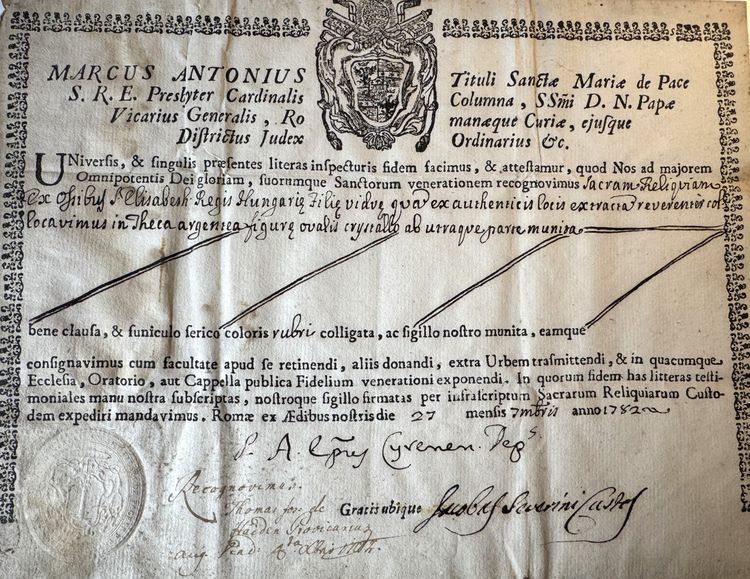 MARCUS ANTONIUS Tituli Sanctæ Mariæ de Pace
S. R. E. Presbyter Cardinalis Columna, SSm̃i D. N. Papæ
Vicarius Generalis, Ro manæque Curiæ, ejusque
Districtus Judex Ordinarius &c.
UNiversis, & singulis præsentes literas inspecturis fidem facimus, & attestamur, quod Nos ad majorem
Omnipotentis Dei gloriam, suorumque Sanctorum venerationem recognovimus Sacram Reliquiam
Ex Ossibus S. Elisabeth Regis Hungariæ Filiæ viduæ quam ex authenticis locis extractam reverenter col
locavimus in Theca argentea figuræ ovalis crystallo ab utraque parte munita
bene clausa, & funiculo serico coloris rubri colligata, ac sigillo nostro munita, eamque
consignavimus cum facultate apud se retinendi, aliis donandi, extra Urbem trasmittendi, & in quacumque
Ecclesia, Oratorio, aut Cappella publica Fidelium venerationi exponendi. In quorum fidem has litteras testi-
moniales manu nostra subscriptas, nostroque sigillo firmatas per infrascriptum Sacrarum Reliquiarum Custo-
dem expediri mandavimus. Romæ ex Ædibus nostris die 27 mensis 7mbris anno 1782
A. Epus Cyrenen. Deps
Recognovimus.
Thomas Jos. de
Haiden Provicarius
Aug. Vind.
Gratis ubique Jacobus Severini Custos